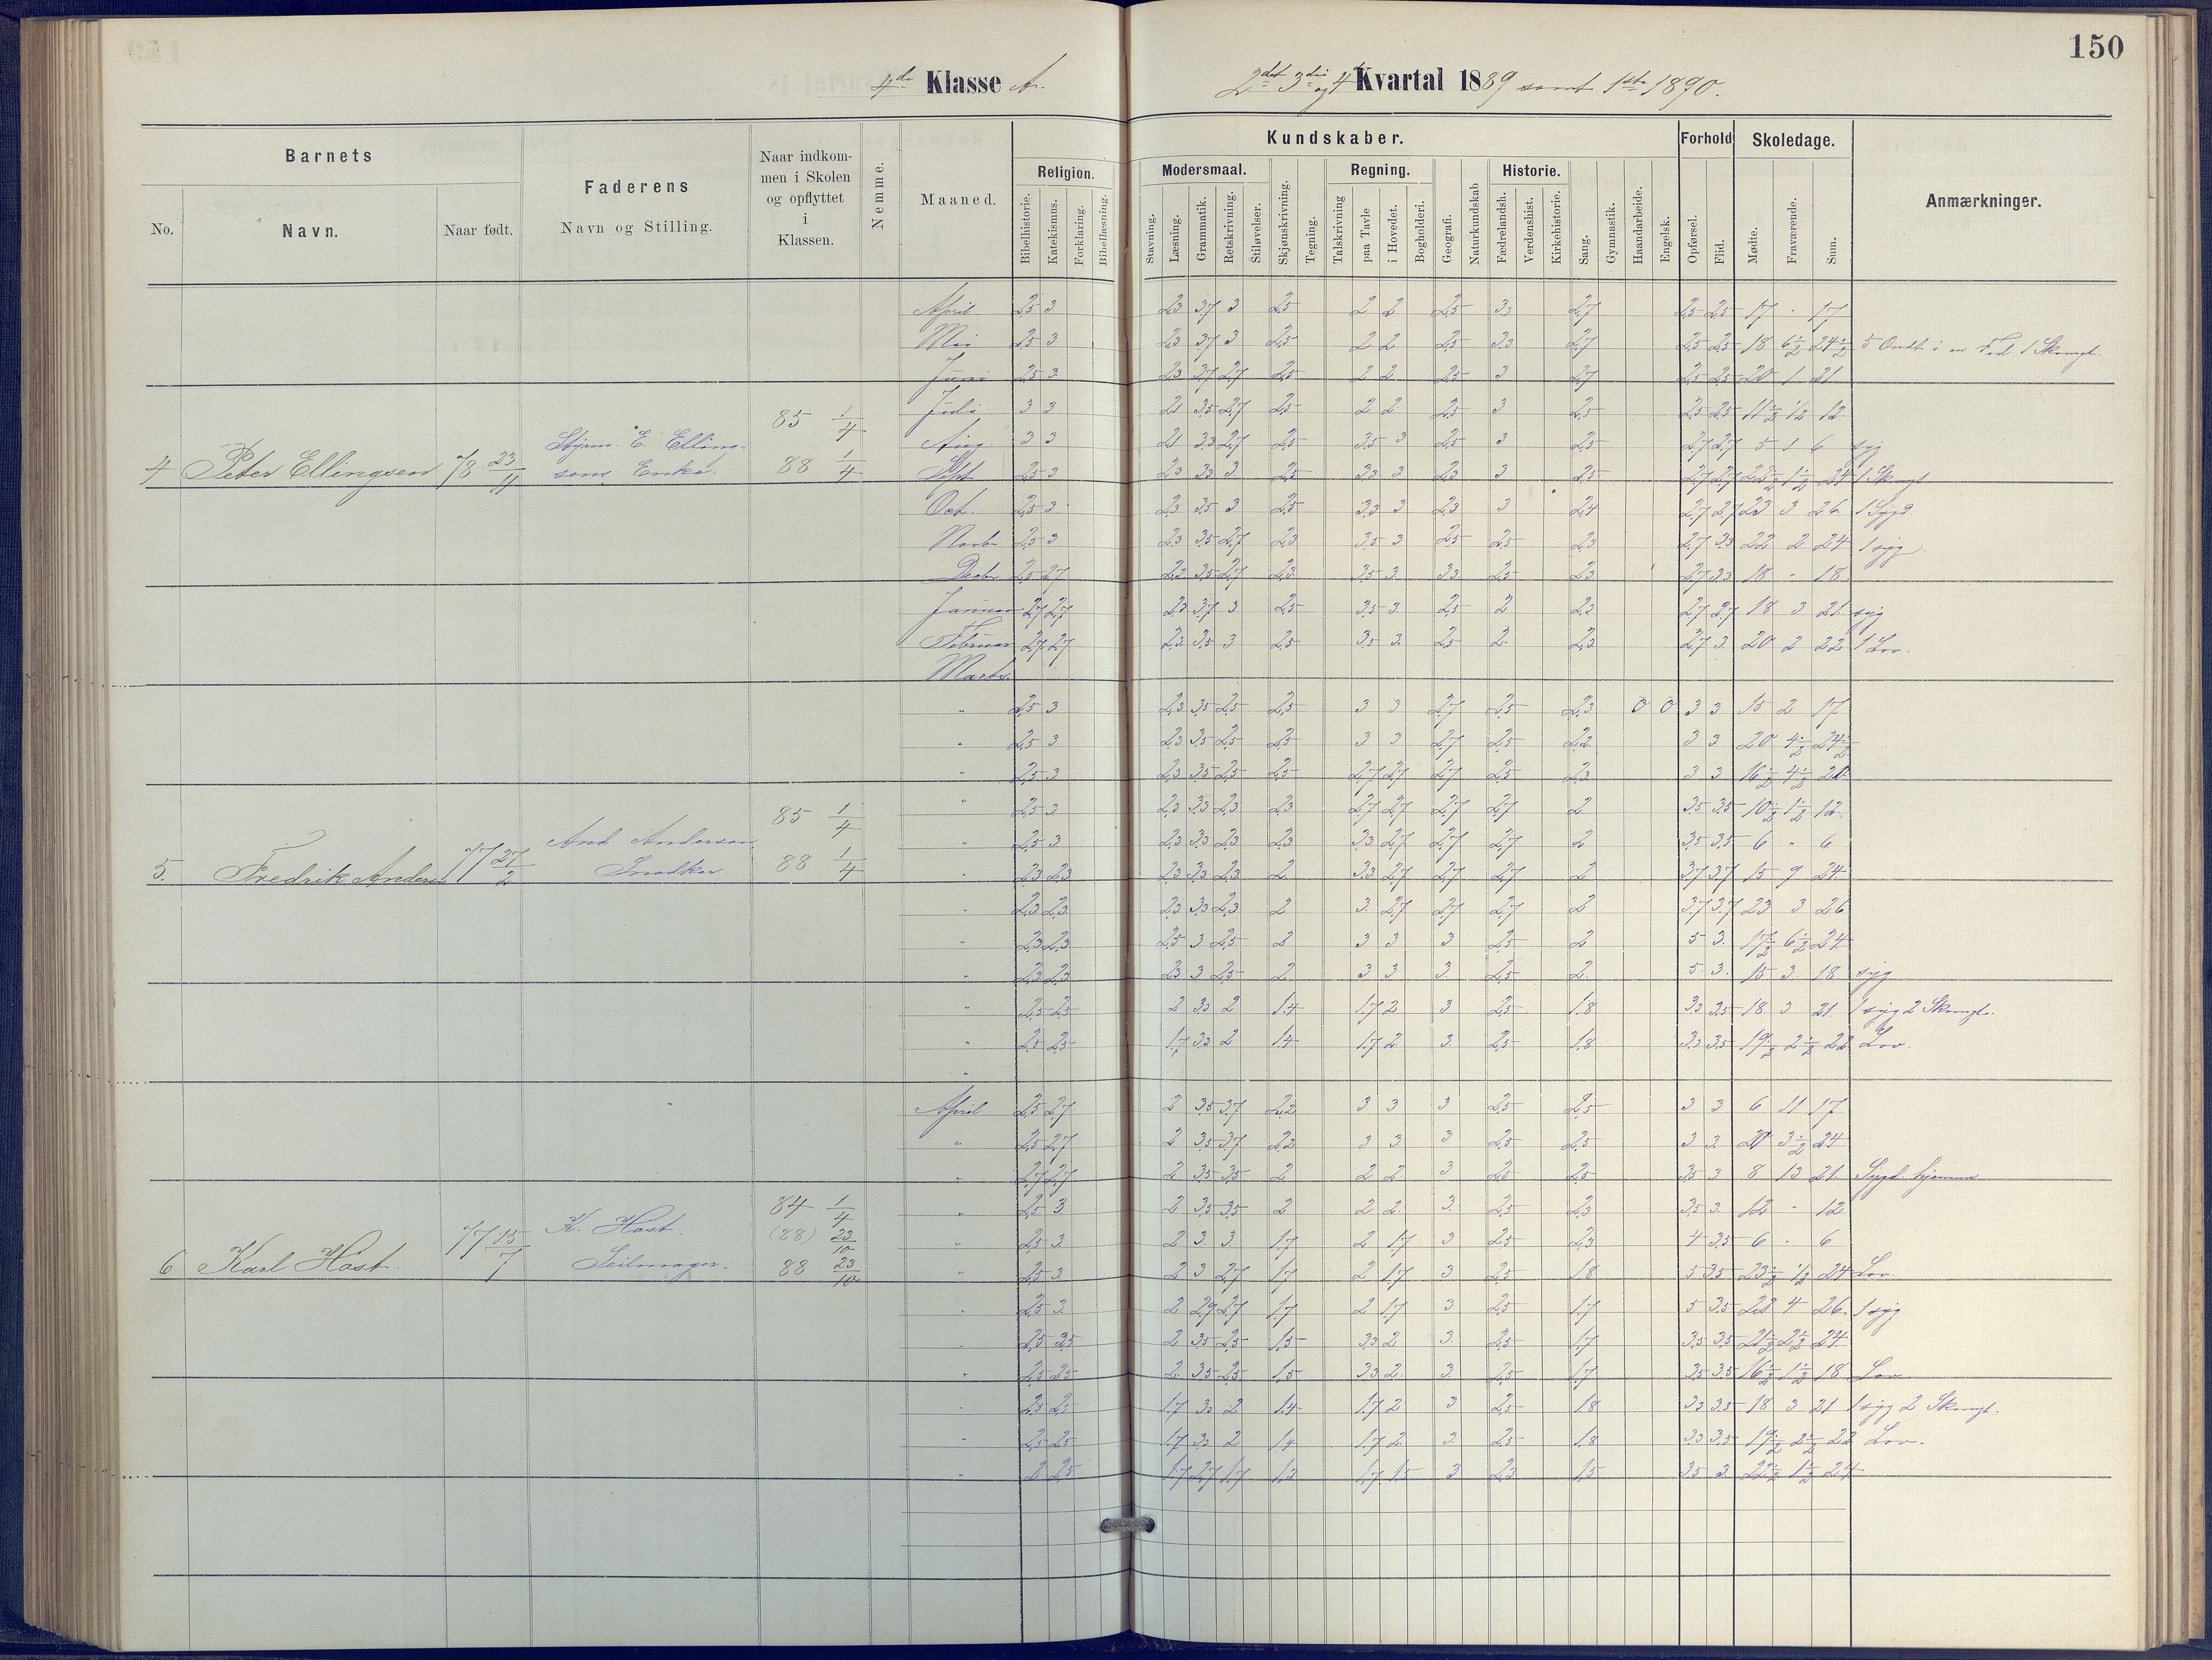 150
4de Klasse A.
2det 3die og 4de Kvartal 1889 samt 1ste 1890.
Barnets
No.
Navn.
Naar født.
Faderens
Navn og Stilling.
Naar indkom-
men i Skolen
og opflyttet
i
Klassen.
Nemme.
Maaned.
Kundskaber.
Religion.
Bibelhistorie.
Katekismus.
Forklaring.
Bibellæsning.
Modersmaal.
Stavning.
Læsning.
Grammatik.
Retskrivning.
Stiløvelser.
Skjønskrivning.
Tegning.
Regning.
Talskrivning
paa Tavle
i Hovedet.
Bogholderi.
Geografi.
Naturkundskab
Historie.
Fædrelandsh.
Verdenshist.
Kirkehistorie.
Sang.
Gymnastik.
Haandarbeide.
Engelsk.
Forhold
Opførsel.
Flid.
Skoledage.
Mødte.
Fraværende.
Sum.
Anmærkninger.
4 Peter Ellingsen 78 23/11
Styrm. E. Elling-
sens Enke.
85 1/4
88 1/4
April 2,5 3 2,3 3,7 3 2,5 2 2 2,5 3,3 2,7 2,5 2,5 17 - 17
Mai 2,5 3 2,3 3,7 3 2,5 2 2 2,5 3,3 2,7 2,5 2,5 18 6½ 24½ 5 Ondt i en Fod 1 Skomgl.
Juni 2,5 3 2,3 3,7 2,7 2,5 2 2 2,5 3 2,7 2,5 2,5 20 1 21
Juli 3 3 2,1 3,5 2,7 2,5 2 2 2,5 3 2,5 2,5 2,5 11½ ½ 12
Aug. 3 3 2,1 3,3 2,7 2,5 3,5 3 2,5 3 2,5 2,7 2,7 5 1 6 syg
Sept 2,5 3 2,3 3,3 3 2,5 3,3 3 2,3 3 2,5 2,7 2,7 22½ 1½ 24 1 Skomgl
Oct. 2,5 3 2,3 3,5 3 2,5 3,3 3 2,3 3 2,4 2,7 2,7 23 3 26 1 Sygd
Novbr 2,5 3 2,3 3,5 2,7 2,3 3,5 3 2,5 2,5 2,3 2,7 3,3 22 2 24 1 syg
Decbr 2,5 2,7 2,2 3,5 2,7 2,3 3,5 3 3,3 2,5 2,3 2,7 3,3 18 - 18
Januar 2,7 2,7 2,3 3,7 3 2,5 3,5 3 2,5 2 2,3 2,7 2,7 18 3 21 syg
Februar 2,7 2,7 2,3 3,5 3 2,5 3,5 3 2,5 2 2,3 2,7 3 20 2 22 1 Lov.
Marts.
5. Fredrik Andersen 77 27/2
And. Andersen
Snedker
85 1/4
88 1/4
" 2,5 3 2,3 3,5 2,5 2,5 3 3 2,7 2,5 2,3 0 0 3 3 15 2 17
" 2,5 3 2,3 3,5 2,5 2,5 3 3 2,7 2,5 2,2 3 3 20 4½ 24½
" 2,5 3 2,3 3,5 2,5 2,5 2,7 2,7 2,7 2,5 2,3 3 3 16½ 4½ 21
" 2,5 3 2,3 3,3 2,3 2,3 2,7 2,7 2,7 2,7 2 3,5 3,5 10½ 1½ 12
" 2,5 3 2,3 3,3 2,3 2,3 3,3 2,7 2,7 2,7 2 3,5 3,5 6 " 6
" 2,3 2,3 2,3 3,3 2,3 2 3,3 2,7 2,7 2,7 2 3,7 3,7 15 9 24
" 2,3 2,3 2,3 3,3 2,3 2 3 2,7 2,7 2,7 2 3,7 3,7 23 3 26
" 2,3 2,3 2,5 3 2,5 2 3 3 3 2,5 2 5 3 17½ 6½ 24
" 2,3 2,3 2,3 3 2,5 2 3 3 3 2,5 2 5 3 15 3 18 syg
" 2,5 2,5 2 3,3 2 1,4 1,7 2 3 2,5 1,8 3,3 3,5 18 3 21 1 syg 2 Skomgl.
" 2,5 2,5 1,7 3,3 2 1,4 1,7 2 3 2,5 1,8 3,3 3,5 19½ 2½ 22 Lov.
"
6 Karl Høst 77 15/7
K. Høst.
Seilmager.
84 1/4
(88) 23/10
88 23/10
April 2,5 2,7 2 3,5 3,7 2,2 3 3 3 2,5 2,5 3 3 6 11 17
" 2,5 2,7 2 3,5 3,7 2,2 3 3 3 2,5 2,5 3 3 21 3½ 24
" 2,7 2,7 2 3,5 3,5 2 2 2 3 2,5 2,5 3,5 3 8 13 21 Sygd. hjemme
" 2,5 3 2 3,5 3,5 2 2 2 3 2,5 2,3 3,5 3 12 - 12
" 2,5 3 2 3 3 1,7 2 1,7 3 2,5 2,3 4 3,5 6 - 6
" 2,5 3 2 3 2,7 1,7 2 1,7 3 2,5 1,8 5 3,5 23½ ½ 24 Lov.
" 2,5 3 2 2,9 2,7 1,7 2 1,7 3 2,5 1,7 5 3,5 22 4 26 1 syg
" 2,5 2,5 2 3,5 2,5 1,5 3,3 2 3 2,5 1,7 3,5 3,5 21½ 2½ 24
" 2,5 2,5 2 3,5 2,5 1,5 3,3 2 3 2,5 1,7 3,5 3,5 16½ 1½ 18 Lov
" 2,5 2,5 1,7 3,3 2 1,4 1,7 2 3 2,5 1,8 3,3 3,5 18 3 21 1 syg 2 Skomgl.
" 2,5 2,5 1,7 3,3 2 1,4 1,7 2 3 2,5 1,8 3,3 3,5 19½ 2½ 22 Lov.
" 2 2,5 1,7 2,7 1,7 1,3 1,7 1,5 3 2,3 1,5 3,5 3 22½ 1½ 24